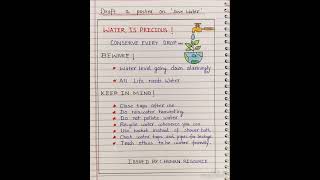 Draft a poster on 'Save Water'.
WATER IS PRECIOUS!
CONSERVE EVERY DROP
BEWARE!
Water level going down alarmingly
All Life needs Water
KEEP IN MIND!
Close taps after use
Do rainwater harvesting
Do not pollute water
Recycle water wherever you can
Use bucket instead of shower bath
Check water taps and pipes for leakage
Teach others to be water friendly.
ISSUED BY: HUMAN RESOURCE